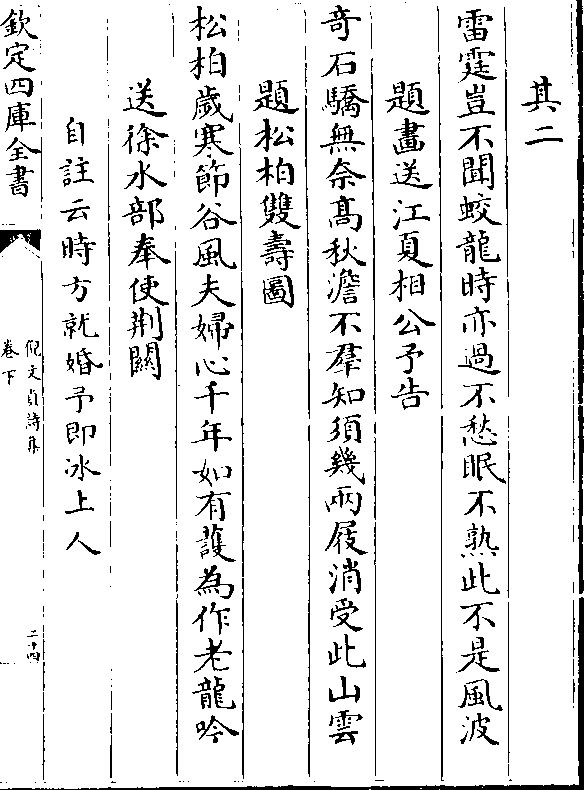 其二
雷霆豈不聞蛟龍時亦過不愁眠不熟此不是風波
題畫送江夏相公予告
奇石驕無奈髙秋澹不羣知須幾兩屐消受此山雲
題松柏雙壽圖
松柏歲寒節谷風夫婦心千年如有䕶為作老龍吟
送徐水部奉使荆關
自註云時方就婚予即冰上人
欽定四庫全書
倪文貞詩集
卷下
二十四